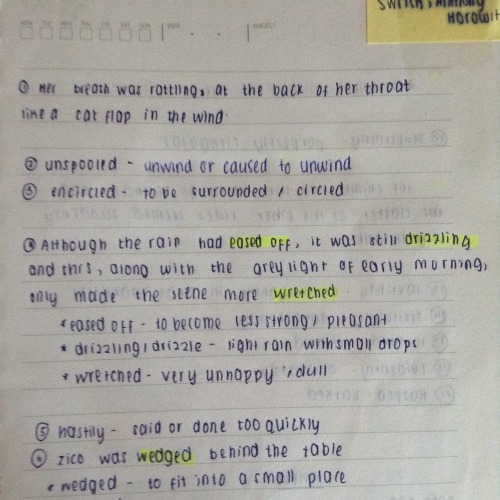 MON TUE WED THU FRI SAT SUN DATE SUBJECT
Switch, Anthony
Horowit
① Her breath was rattling, at the back of her throat
like a cat flap in the wind.
② unspooled - unwind or caused to unwind
③ encircled - to be surrounded / circled
④ Although the rain had eased off, it was still drizzling
and this, along with the grey light of early morning,
only made the scene more wretched
* eased off - to become less strong / pleasant
* drizzling / drizzle - light rain with small drops
* wretched - very unhappy / dull
⑤ hastily - said or done too quickly
⑥ zico was wedged behind the table
* wedged - to fit into a small place